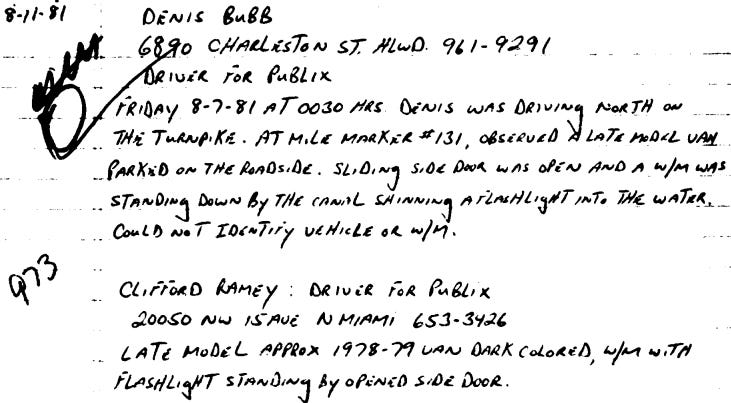 8-11-81
DENIS BUBB
6890 CHARLESTON ST. HLWD. 961-9291
DRIVER FOR PUBLIX
FRIDAY 8-7-81 AT 0030 HRS. DENIS WAS DRIVING NORTH ON
THE TURNPIKE. AT MILE MARKER #131, OBSERVED A LATE MODEL VAN
PARKED ON THE ROADSIDE. SLIDING SIDE DOOR WAS OPEN AND A W/M WAS
STANDING DOWN BY THE CANAL SHINNING A FLASHLIGHT INTO THE WATER.
COULD NOT IDENTIFY VEHICLE OR W/M.
973
CLIFFORD RAMEY: DRIVER FOR PUBLIX
20050 NW 15 AVE N MIAMI 653-3426
LATE MODEL APPROX 1978-79 VAN DARK COLORED, W/M WITH
FLASHLIGHT STANDING BY OPENED SIDE DOOR.